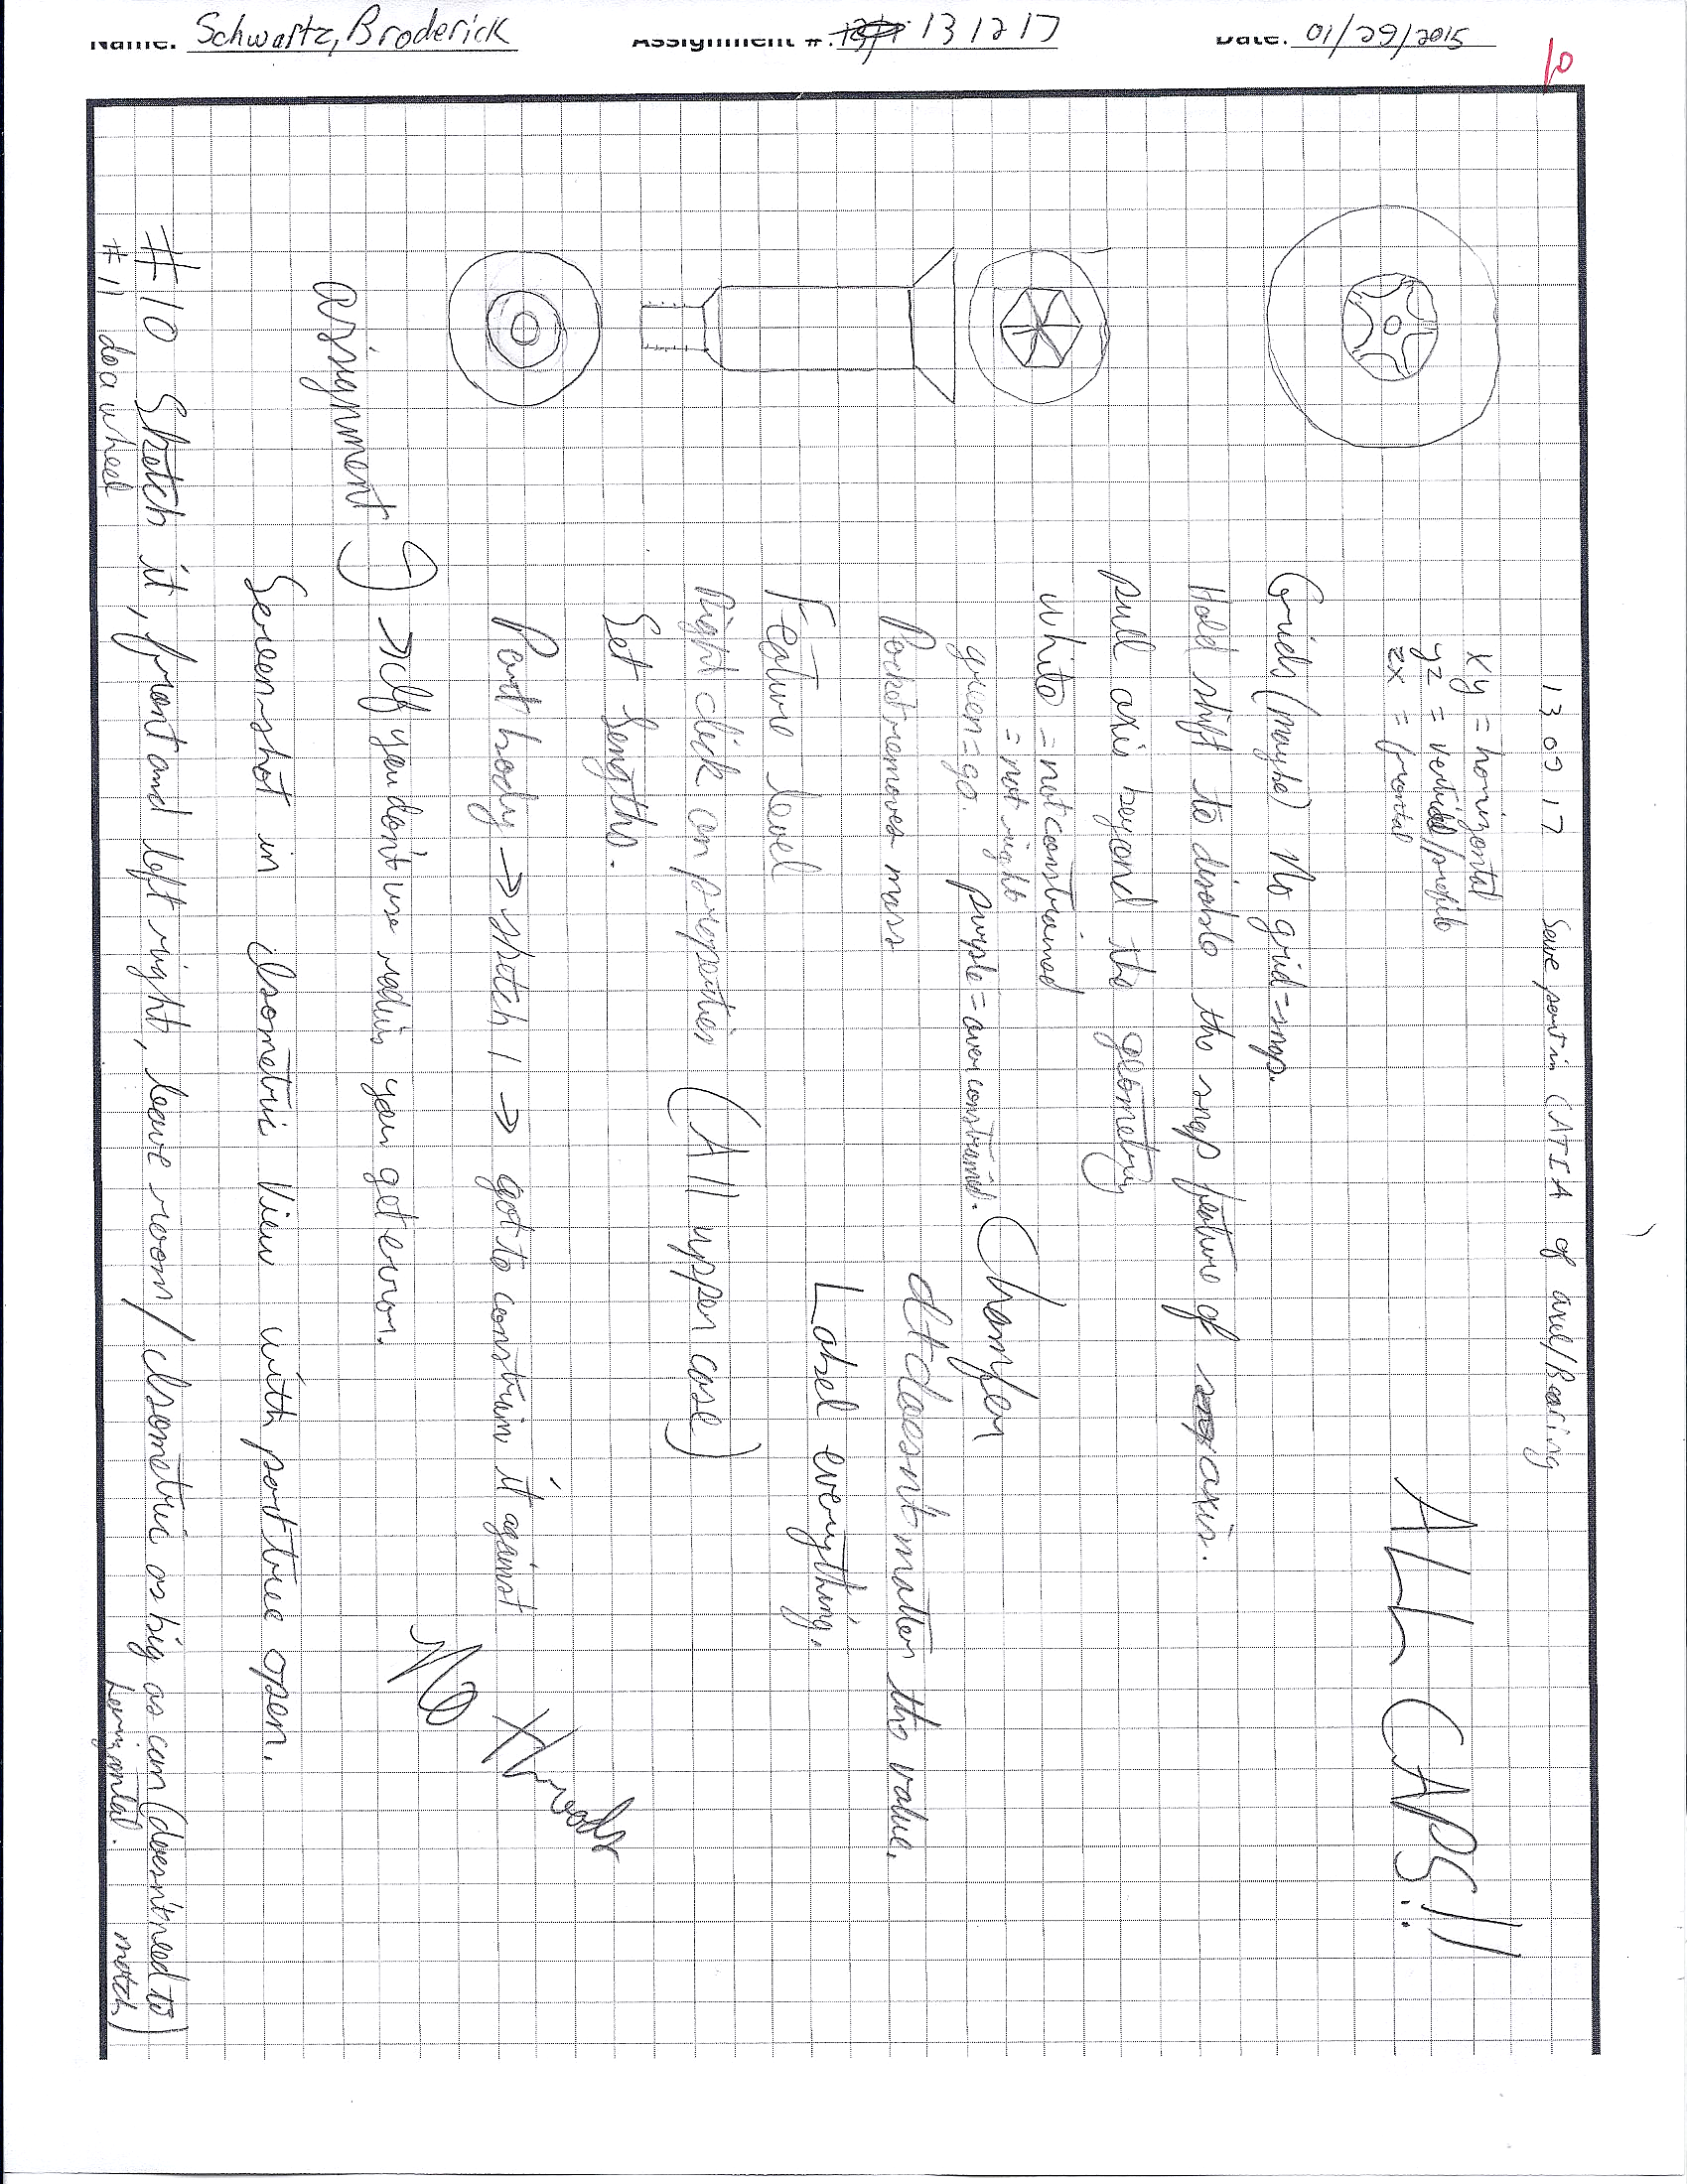 Name: Schwartz, Broderick Assignment #: 131217 Date: 01/29/2015
10
130917 Save part in CATIA of axel/Bearing
xy = horizontal
yz = vertical/profile
zx = frontal
ALL CAPS!!
Grids (maybe) No grid = snap.
Hold shift to disable the snap feature of axis.
pull axis beyond the geometry
white = not constrained
= not right
green = go. purple = overconstraind.
Chamfer
Pocket removes mass
It doesnt matter the value.
Feature level
Label everything.
Right click on properties (All upper case)
Set Lengths.
Part body → sketch 1 → got to constrain it against
Assignment 9 → If you don't use radius you get error.
Screen-shot in isometric View with part tree open.
#10 Sketch it, front and left right, leave room / isometric as big as can (doesn't need to
#11 do a wheel
match)